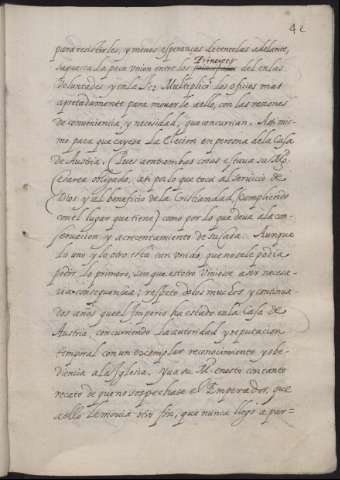 42
para resistirles, y menos esperanças de tenerlas adelante,
segun la poca union entre los Principes del en las
Voluntades y en la fee. Multiplicò los oficios mas
apretadamente para mouerle a ello, con las razones
de conueniencia, y necesidad, que concurrian. Assi mis-
mo para que cayese la Election en persona de la Casa
de Austria. (Pues a entrambas cosas estaua su Mag.
Cesarea obligado, assi por lo que toca al seruicio de
Dios y al beneficio de la Cristiandad, (cumpliendo
con el lugar que tiene) como por lo que deue a la con-
seruacion y acrecentamiento de su Casa. Aunque
lo uno y lo otro està tan unido, que no se le podia
pedir lo primero, sin que estotro viniese a ser necesa-
ria consequencia; respeto de los muchos y continua-
dos años que el Imperio ha estado en la Casa de
Austria, concurriendo la autoridad y reputacion
temporal con un exemplar reconocimiento y obe-
diencia a la Iglesia. Y ua su Mag. en esto con tanto
recato de que no sospechase el Emperador, que
a ello le mouia otro fin, que nunca llegò a par-